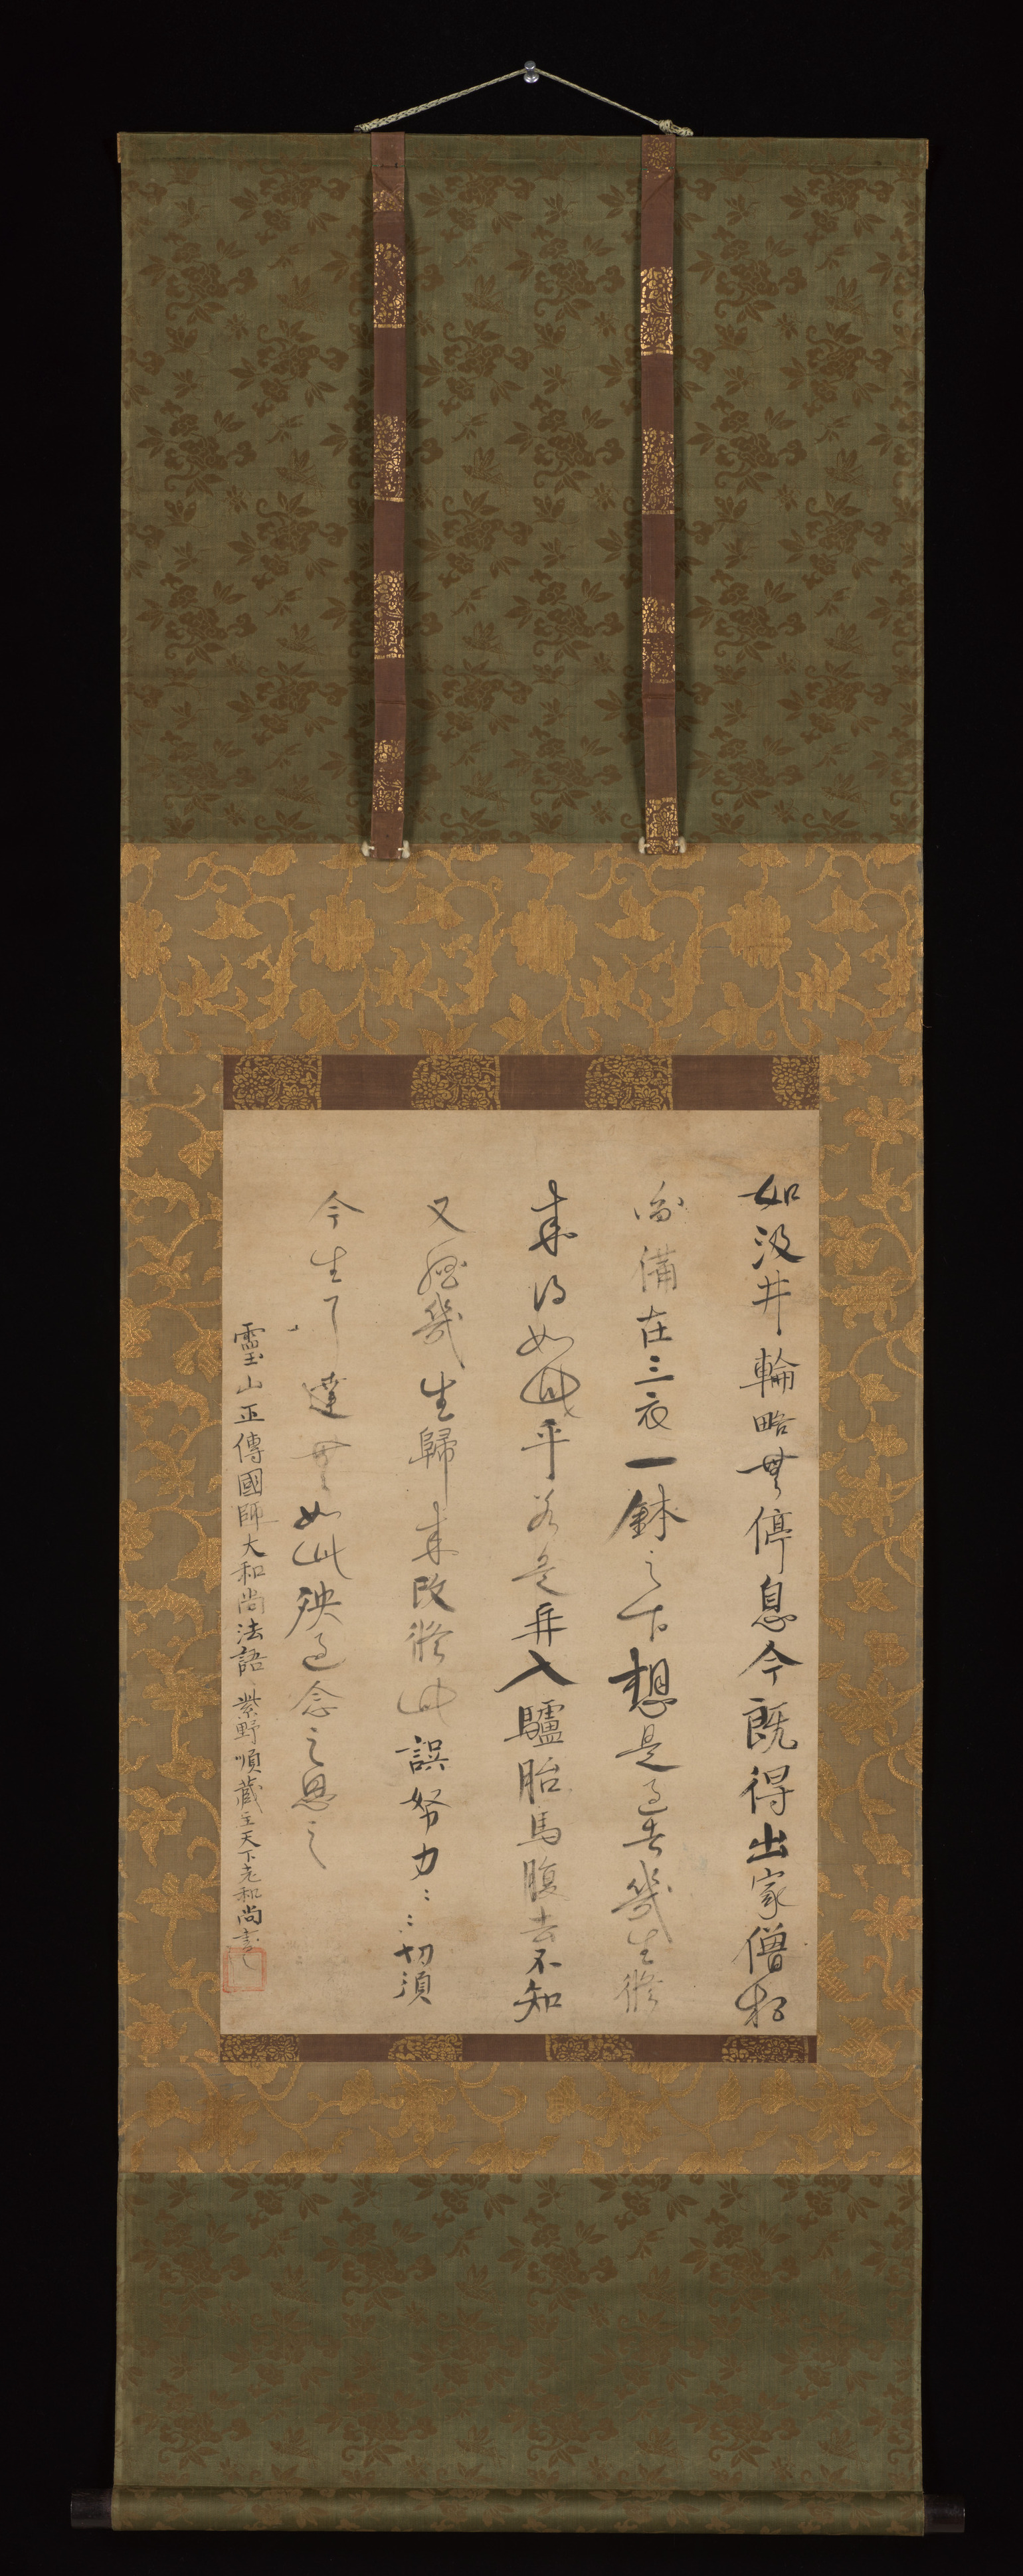 如汲井輪略無停息今既得出家僧相
尚備在三衣一鉢之下想是過去幾生修
來得如此乎若是再入驢胎馬腹去不知
又經幾生歸來改修此誤努力〻〻切須
今生了達無如此殃過念之思之
靈山正傳國師大和尚法語 紫野順蔵主天下老和尚書